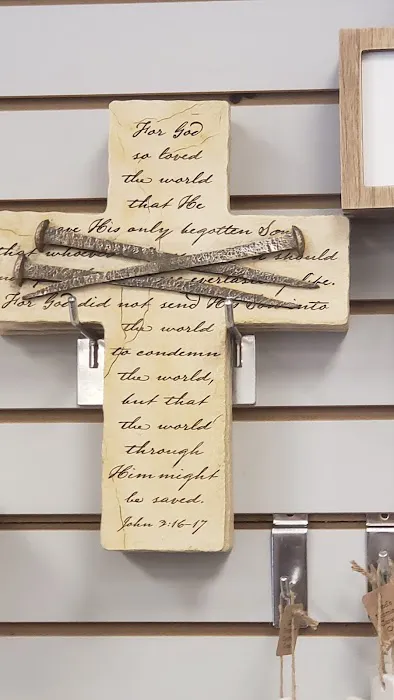 For God
so loved
the world
that He
gave His only begotten Son
that whoever should
everlasting life.
For God did not send His Son into
the world
to condemn
the world,
but that
the world
through
Him might
be saved.
John 3:16-17